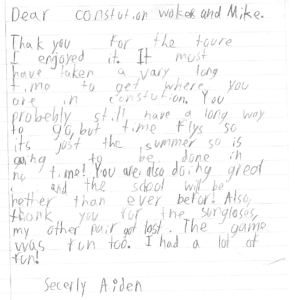 Dear constution woker and Mike.
Thak you for the toure
I enjoyed it. It must
have taken a vary long
time to get where you
are in constution. You
probebly still have a long way
to go, but time flys so
its just the summer so is
going to be done in
no time! You are also doing great
and the scool will be
better than ever befor! Also,
thank you for the sungloses,
my other pair got lost. The game
was fun too. I had a lot of
fun!
Secerly Aiden